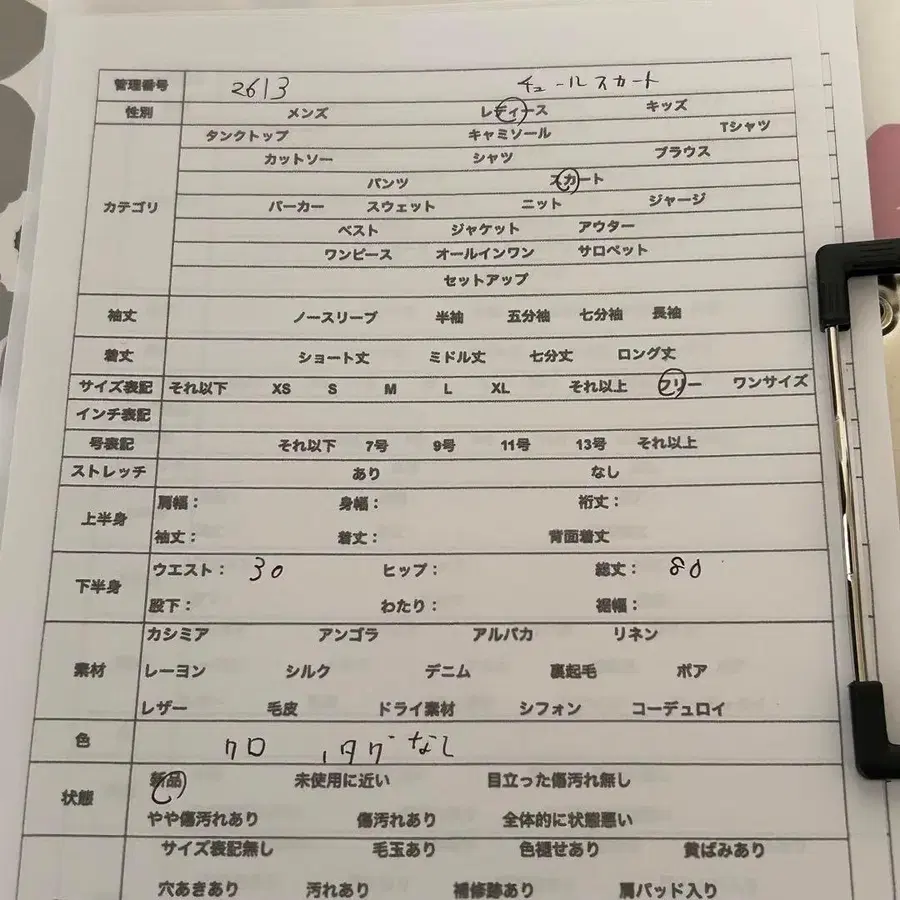 管理番号 2613 チュールスカート
性別 メンズ レディース キッズ
タンクトップ キャミソール Tシャツ
カットソー シャツ ブラウス
パンツ スカート
カテゴリ パーカー スウェット ニット ジャージ
ベスト ジャケット アウター
ワンピース オールインワン サロペット
セットアップ
袖丈 ノースリーブ 半袖 五分袖 七分袖 長袖
着丈 ショート丈 ミドル丈 七分丈 ロング丈
サイズ表記 それ以下 XS S M L XL それ以上 フリー ワンサイズ
インチ表記
号表記 それ以下 7号 9号 11号 13号 それ以上
ストレッチ あり なし
上半身 肩幅： 身幅： 裄丈：
袖丈： 着丈： 背面着丈
下半身 ウエスト： 30 ヒップ： 総丈： 80
股下： わたり： 裾幅：
カシミア アンゴラ アルパカ リネン
素材 レーヨン シルク デニム 裏起毛 ボア
レザー 毛皮 ドライ素材 シフォン コーデュロイ
色 クロ ,タグなし
状態 新品 未使用に近い 目立った傷汚れ無し
やや傷汚れあり 傷汚れあり 全体的に状態悪い
サイズ表記無し 毛玉あり 色褪せあり 黄ばみあり
穴あきあり 汚れあり 補修跡あり 肩パッド入り